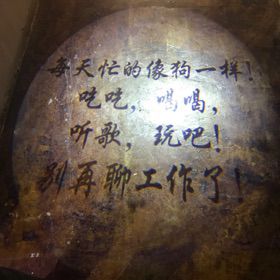 每天忙的像狗一样!
吃吃,喝喝,
听歌,玩吧!
别再聊工作了!